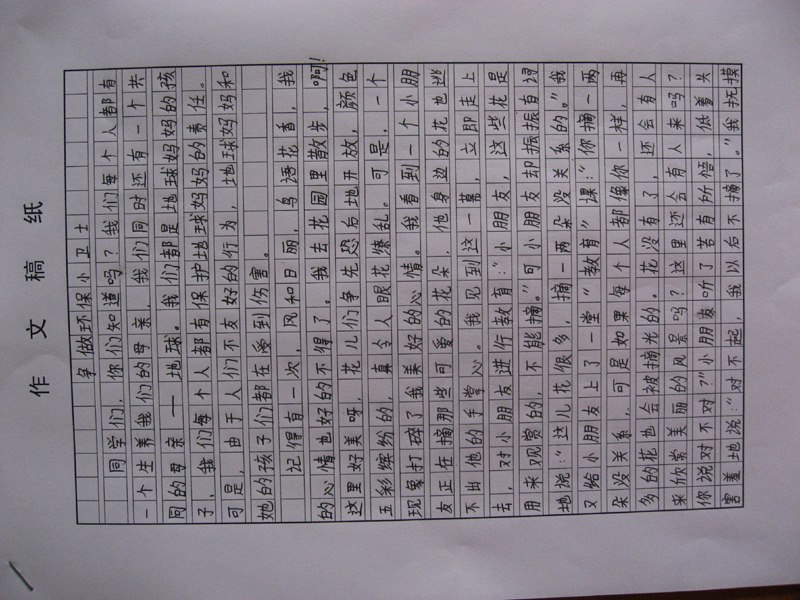 作文稿纸
争做环保小卫士
同学们，你们知道吗？我们每个人都有
一个生养我们的母亲，我们同时还有一个共
同的母亲——地球。我们都是地球妈妈的孩
子，我们每个人都有保护地球妈妈的责任。
可是，由于人们不友好的行为，地球妈妈和
她的孩子们都在受到伤害。
记得有一次，风和日丽，鸟语花香，我
的心情也好的不得了。我去花园里散步，啊！
这里好美呀，花儿们争先恐后地开放，颜色
五彩缤纷的，真令人眼花缭乱。可是，一个
现象打碎了我美好的心情。我看到一个小朋
友正在摘那些可爱的花朵，他身边的花也逃
不出他的手掌心。我见到这一幕，立即走上
去，对小朋友进行教育：“小朋友，这些花是
用来观赏的，不能摘。”可小朋友却振振有词
地说：“这儿花很多，摘一两朵没关系的。”我
又给小朋友上了一堂“教育”课：“你摘一两
朵没关系，可是如果每个人都像你一样，再
多的花也会被摘光的。花没有了，还会有人
来欣赏美丽的风景吗？这里还会有人来吗？
你说对不对？”小朋友听了若有所悟，低着头
害羞地说：“对不起，我以后不摘了。”我抚摸